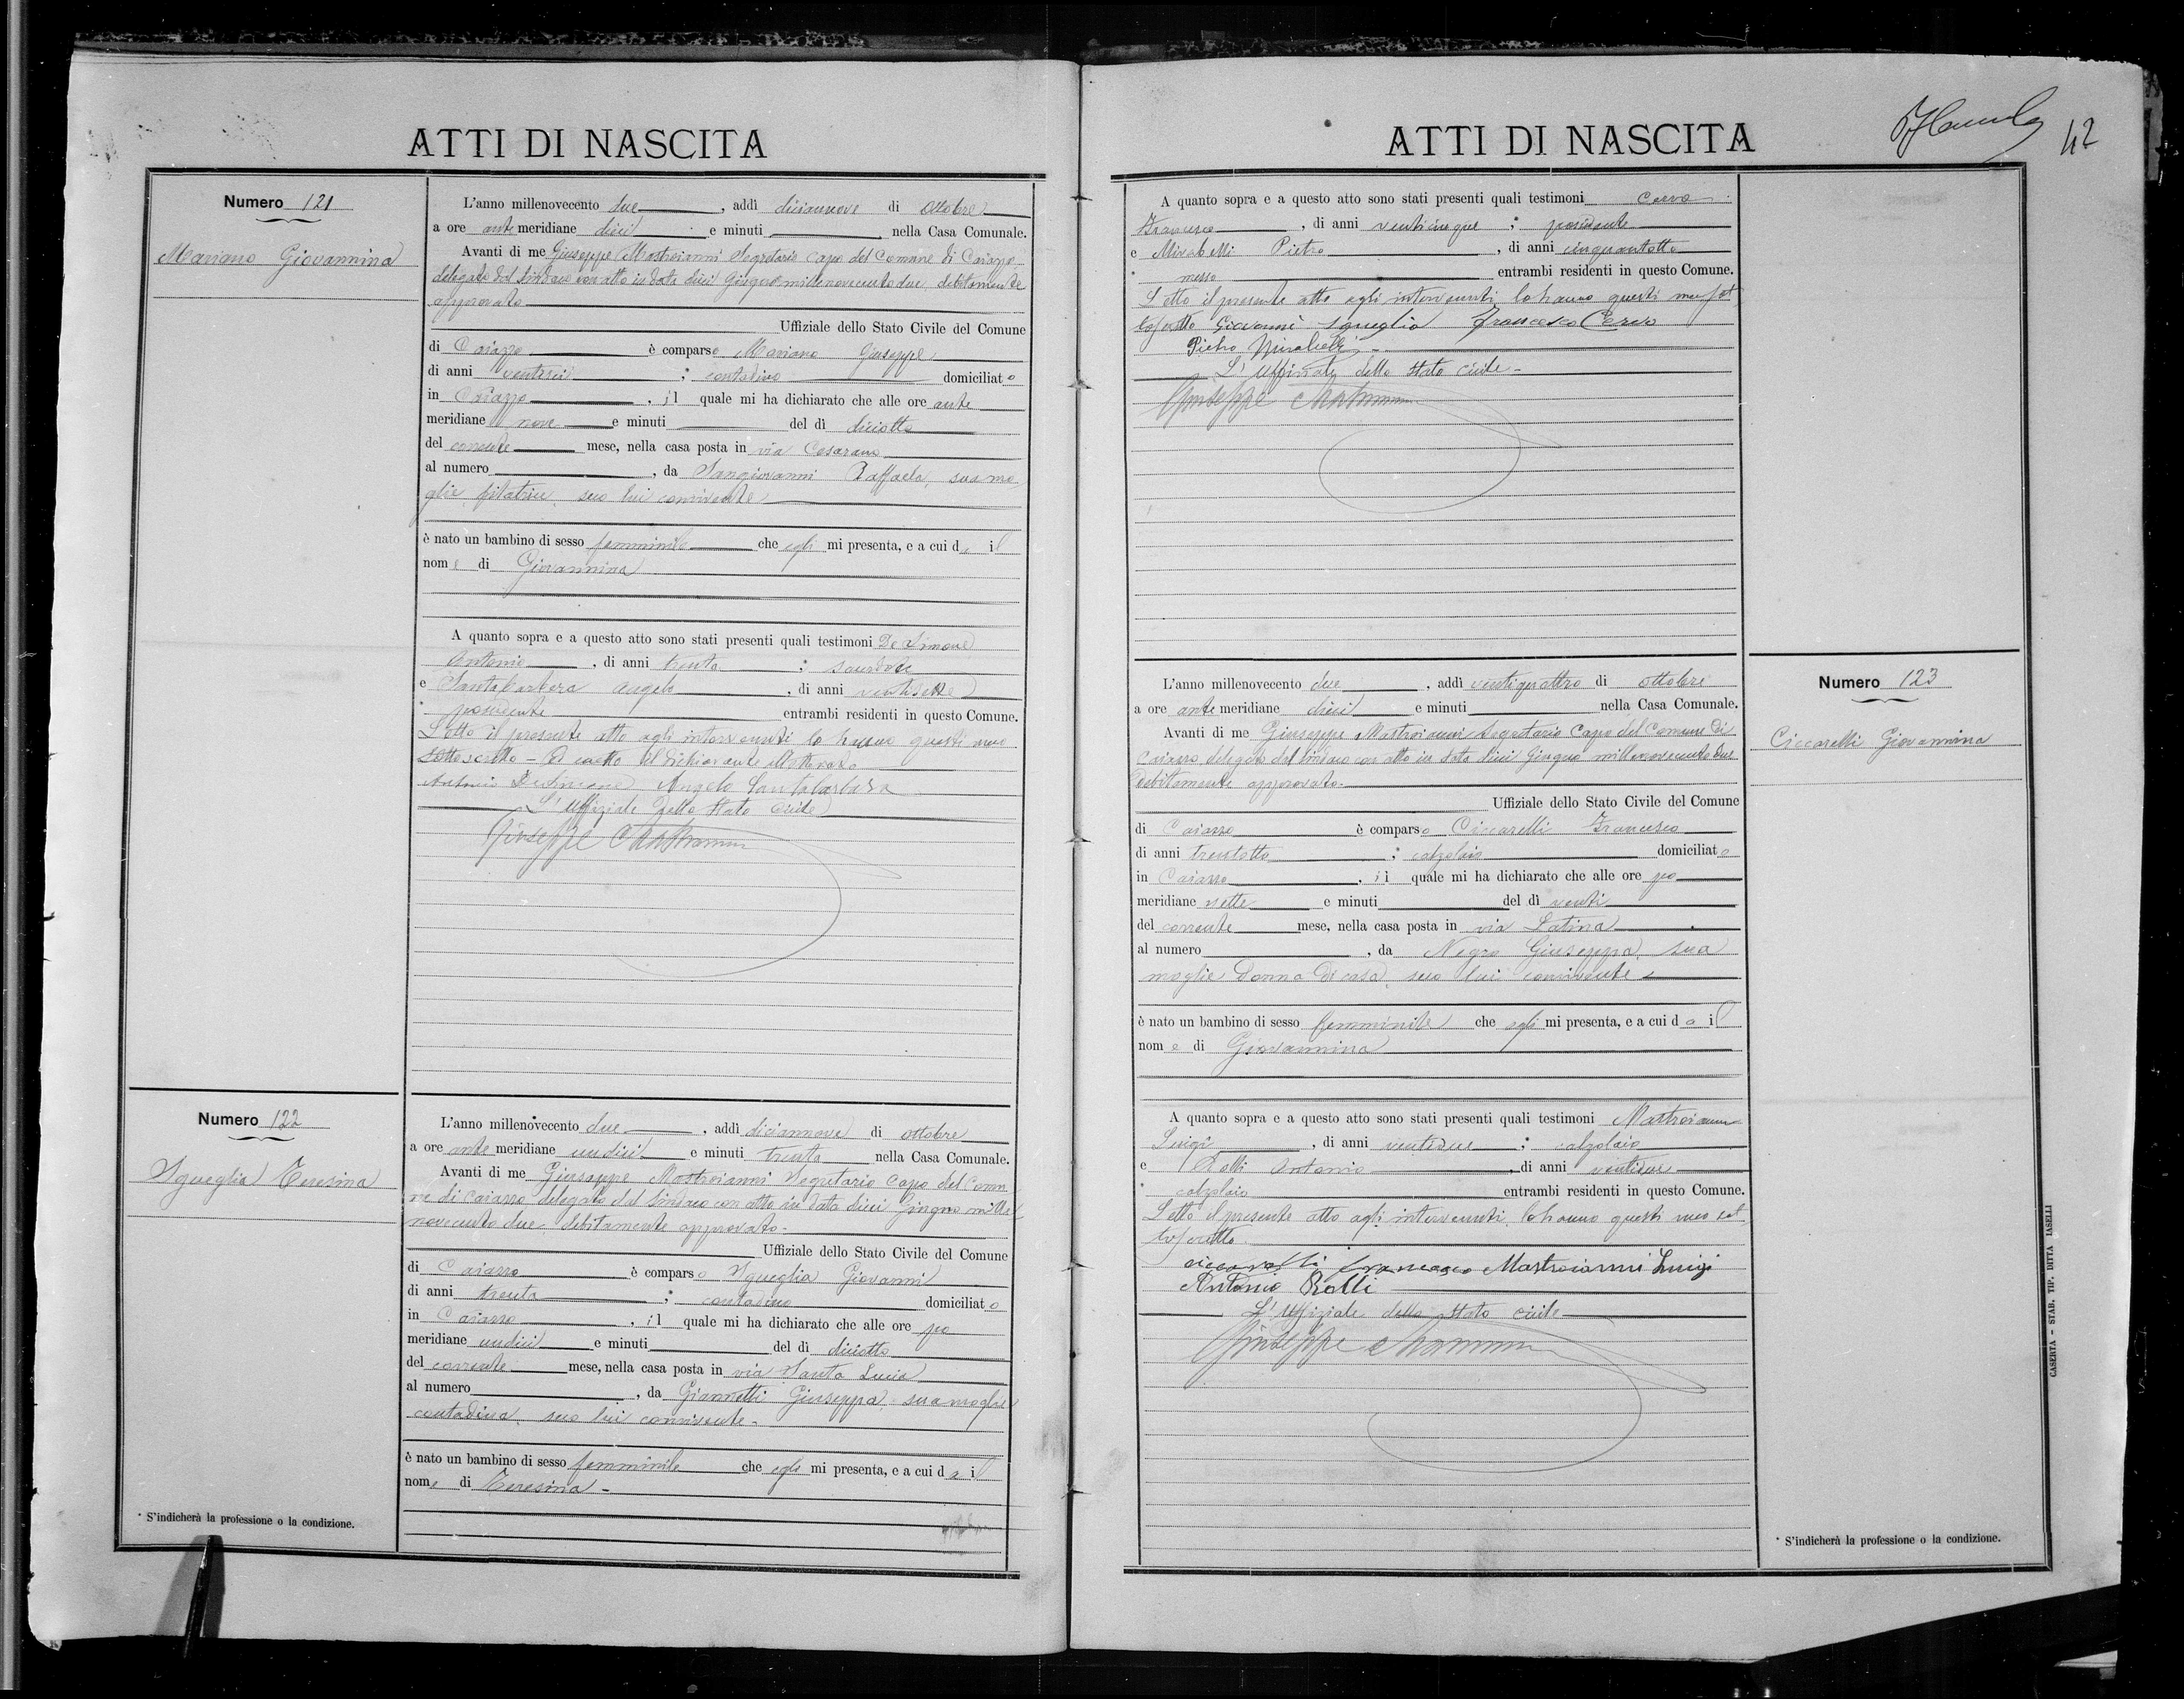 ATTI DI NASCITA
Numero 121
Mariano Giovannina
L'anno millenovecento due, addì diciannove di Ottobre
a ore ante meridiane dieci e minuti nella Casa Comunale.
Avanti di me Giuseppe Mastroianni Segretario Capo del Comune di Caiazzo
delegato dal Sindaco con atto in data dieci Giugno millenovecentodue, debitamente
approvato
Uffiziale dello Stato Civile del Comune
di Caiazzo è comparso Mariano Giuseppe
di anni ventisei ; contadino domiciliato
in Caiazzo, il quale mi ha dichiarato che alle ore ante
meridiane nove e minuti del dì diciotto
del corrente mese, nella casa posta in via Cesarano
al numero , da Sangiovanni Raffaela, sua mo
glie, filatrice, seco lui convivente
è nato un bambino di sesso femminile che egli mi presenta, e a cui dà il
nome di Giovannina
A quanto sopra e a questo atto sono stati presenti quali testimoni De Simone
Antonio, di anni trenta ; sacerdote
e Santabarbera Angelo, di anni ventisette
* possidente entrambi residenti in questo Comune.
Letto il presente atto agli intervenuti lo hanno questi meco
sottoscritto - Ad eccetto il dichiarante
Antonio De Simone Angelo Santabarbara
L'Uffiziale dello Stato Civile
Giuseppe Mastroianni
Numero 122
Squeglia Teresina
L'anno millenovecento due, addì diciannove di ottobre
a ore ante meridiane undici e minuti trenta nella Casa Comunale.
Avanti di me Giuseppe Mastroianni Segretario Capo del Comu
ne di Caiazzo delegato dal Sindaco con atto in data dieci Giugno mille
novecento due, debitamente approvato -
Uffiziale dello Stato Civile del Comune
di Caiazzo è comparso Squeglia Giovanni
di anni trenta ; contadino domiciliato
in Caiazzo, il quale mi ha dichiarato che alle ore po
meridiane undici e minuti del dì diciotto
del corrente mese, nella casa posta in via Santa Lucia
al numero , da Giannetti Giuseppa, sua moglie
contadina, seco lui convivente -
è nato un bambino di sesso femminile che egli mi presenta, e a cui dà il
nome di Teresina -
* S'indicherà la professione o la condizione.
ATTI DI NASCITA
42
A quanto sopra e a questo atto sono stati presenti quali testimoni Cervo
Francesco, di anni venticinque ; possidente
e Mirabelli Pietro, di anni cinquantotto
* messo entrambi residenti in questo Comune.
Letto il presente atto agli intervenuti, lo hanno questi meco sot
toscritto Giovanni Squeglia Francesco Cervo
Pietro Mirabelli -
L'Uffiziale dello Stato Civile -
Giuseppe Mastroianni
Numero 123
Ciccarelli Giovannina
L'anno millenovecento due, addì ventiquattro di ottobre
a ore ante meridiane dieci e minuti nella Casa Comunale.
Avanti di me Giuseppe Mastroianni Segretario Capo del Comune di
Caiazzo, delegato dal Sindaco con atto in data dieci Giugno millenovecento due
debitamente approvato -
Uffiziale dello Stato Civile del Comune
di Caiazzo è comparso Ciccarelli Francesco
di anni trentotto ; calzolaio domiciliato
in Caiazzo, il quale mi ha dichiarato che alle ore po
meridiane sette e minuti del dì venti
del corrente mese, nella casa posta in via Latina
al numero , da Negro Giuseppa, sua
moglie donna di casa, seco lui convivente
è nato un bambino di sesso femminile che egli mi presenta, e a cui dà il
nome di Giovannina
A quanto sopra e a questo atto sono stati presenti quali testimoni Mastroianni
Luigi, di anni ventidue ; calzolaio
e Rolli Antonio, di anni ventidue
* calzolaio entrambi residenti in questo Comune.
Letto il presente atto agli intervenuti, lo hanno questi meco sot
toscritto -
ciccarelli francesco Mastroianni Luigi
Antonio Rolli
L'Uffiziale dello Stato Civile
Giuseppe Mastroianni
* S'indicherà la professione o la condizione.
CASERTA - STAB. TIP. DITTA IASELLI